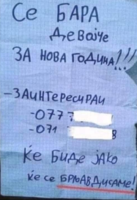 СЕ БАРА
ДЕВОЈЧЕ
ЗА НОВА ГОДИНА!!!
-ЗАИНТЕРЕСИРАИ
-077
-071 8
ЌЕ БИДЕ ЈАКО
ЌЕ СЕ !